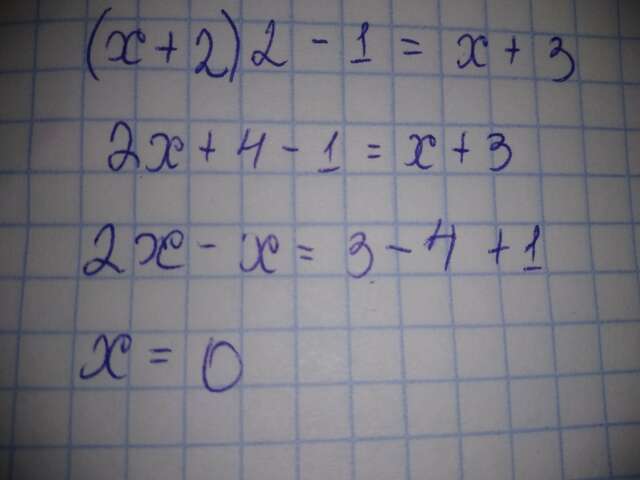 (x+2)2-1=x+3
2x+4-1=x+3
2x-x=3-4+1
x=0